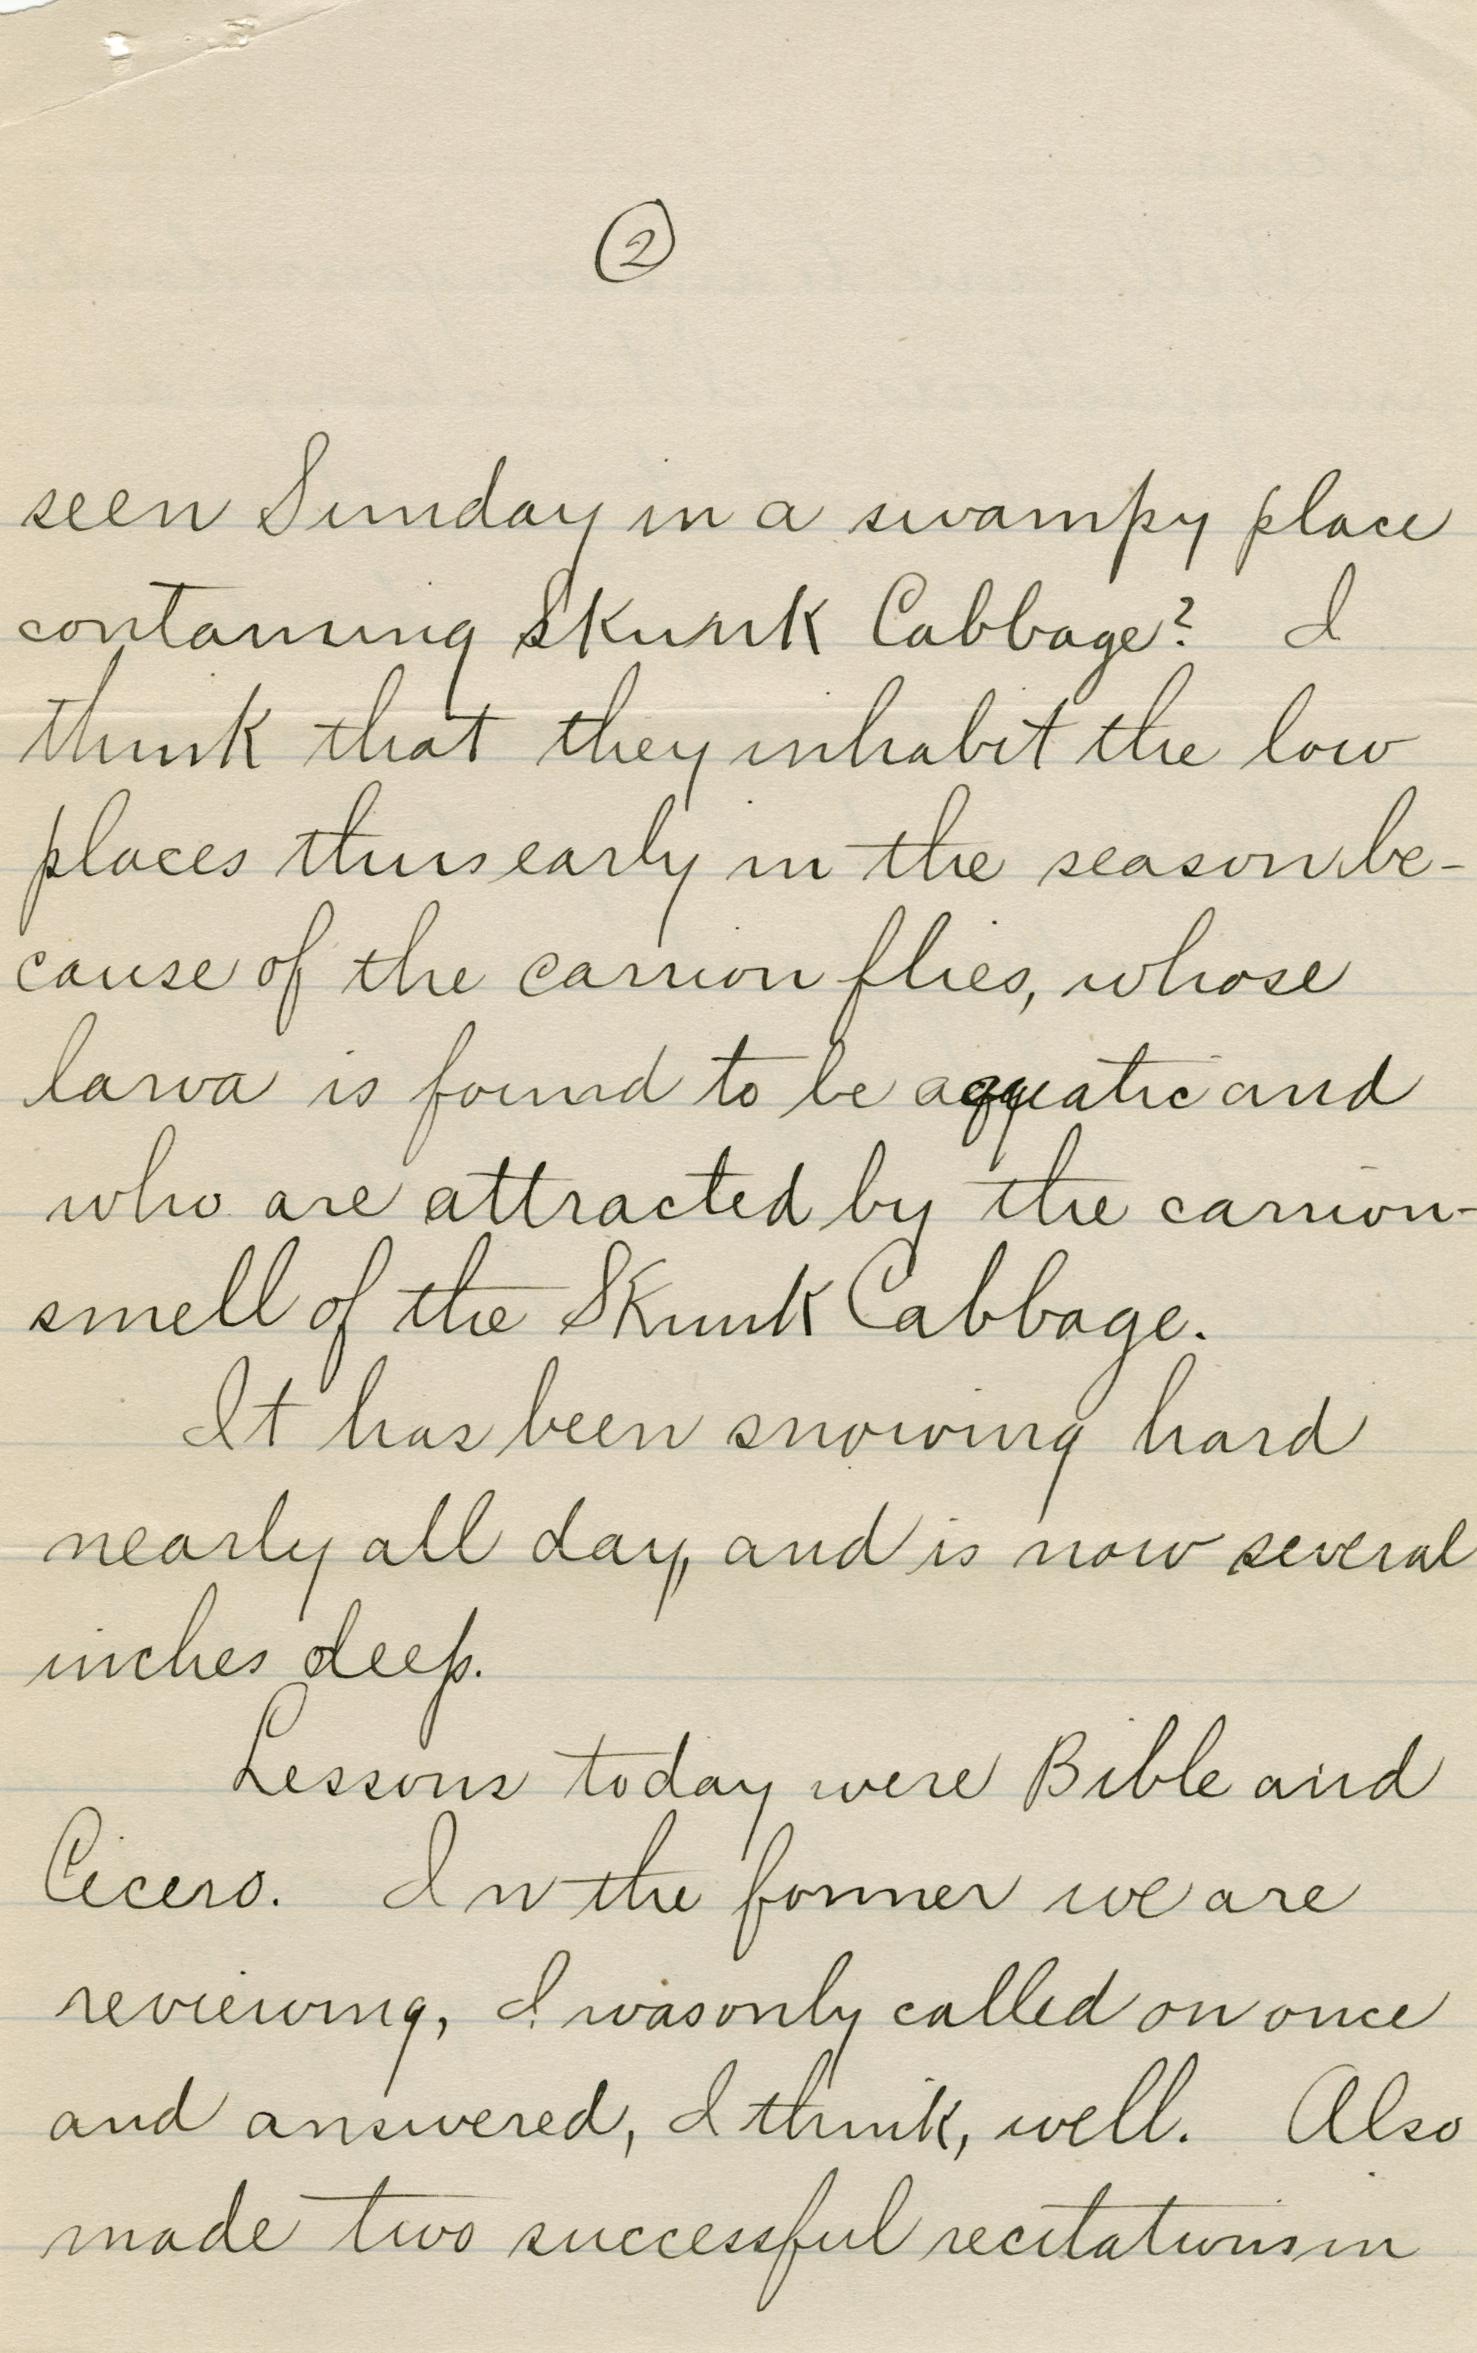 2
seen Sunday in a swampy place
containing Skunk Cabbage? I
think that they inhabit the low
places thus early in the season be-
cause of the carrion flies, whose
larva is found to be aquatic and
who are attracted by the carrion-
smell of the Skunk Cabbage.
It has been snowing hard
nearly all day, and is now several
inches deep.
Lessons today were Bible and
Cicero. In the former we are
reviewing, I was only called on once
and answered, I think, well. Also
made two successful recitations in